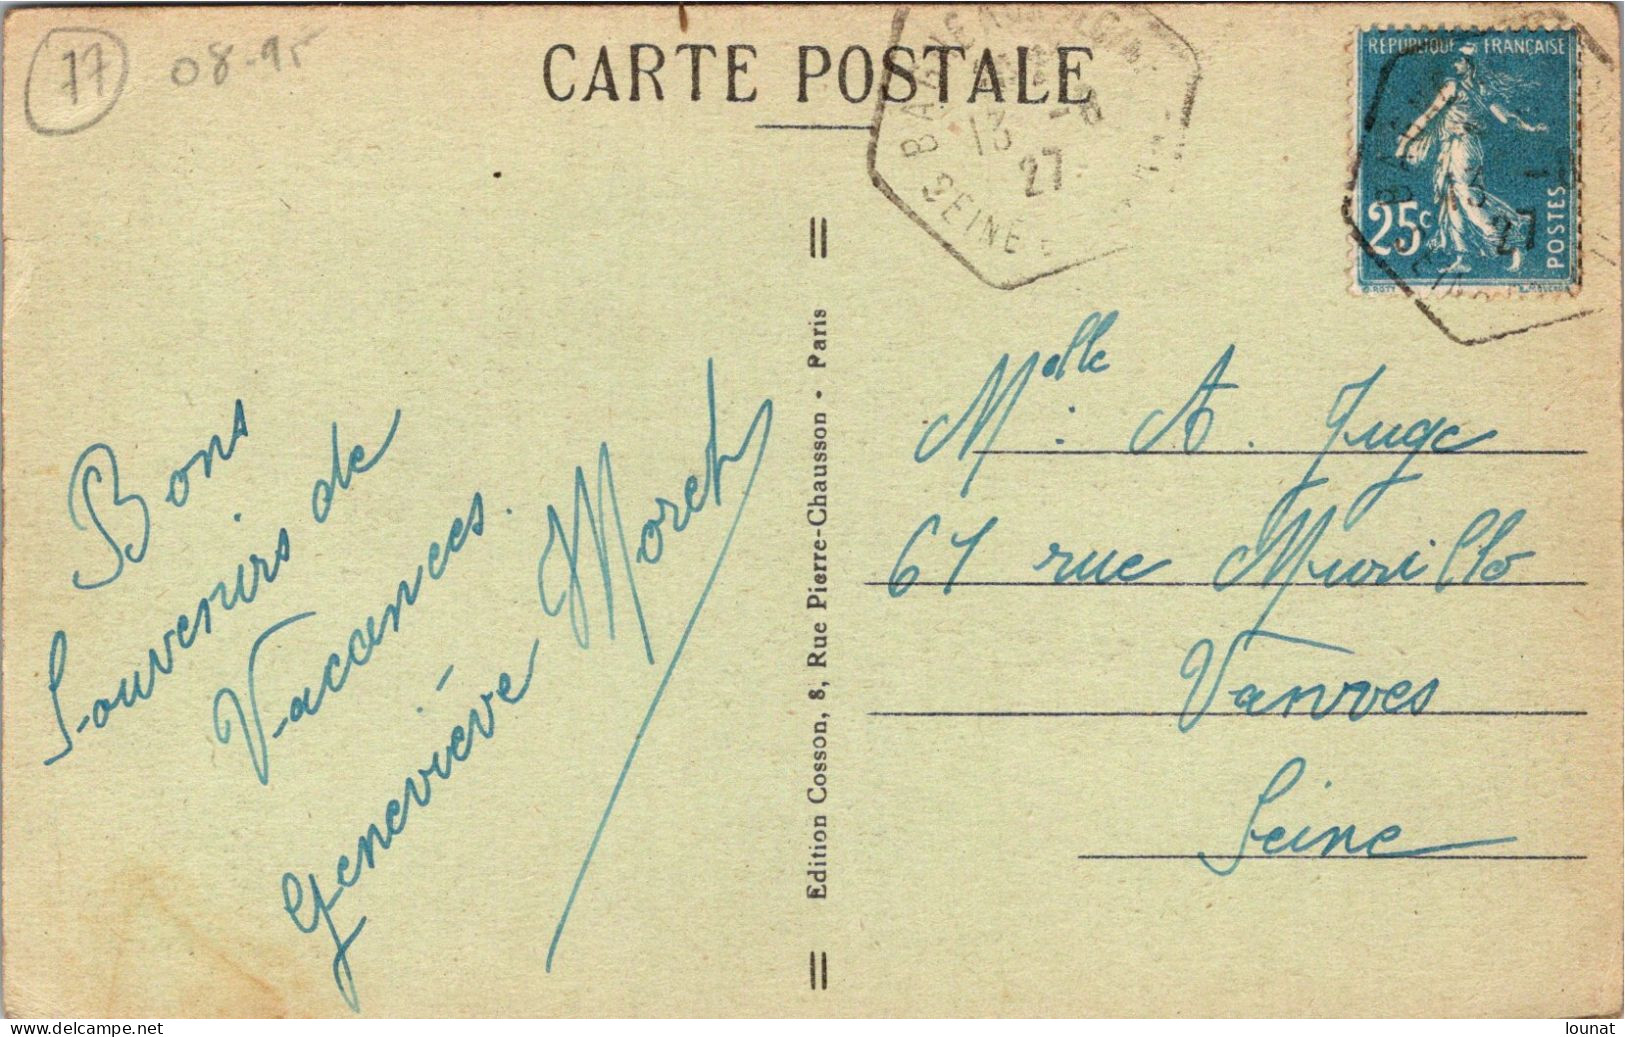 77
08-95
CARTE POSTALE
13 -8
27
SEINE
RÉPUBLIQUE FRANÇAISE
25c
POSTES
13
27
Bons
Souvenirs de
Vacances.
Geneviève Moret
Edition Cosson, 8, Rue Pierre-Chausson • Paris
Melle. A. Juge
67 rue Murillo
Vanves
Seine
lounat